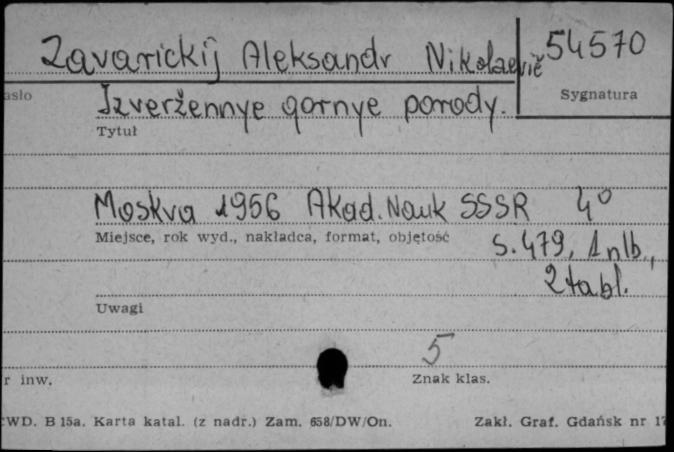 Zavarickij Aleksandr Nikolaevič 54570
asło Sygnatura
Izveržennye gornye porody.
Tytuł
Moskva 1956 Akad. Nauk SSSR 4°
Miejsce, rok wyd., nakładca, format, objętość
s. 479, 1 nlb.,
2 tabl.
Uwagi
5
r inw. Znak klas.
WD. B 15a. Karta katal. (z nadr.) Zam. 658/DW/On. Zakł. Graf. Gdańsk nr 17